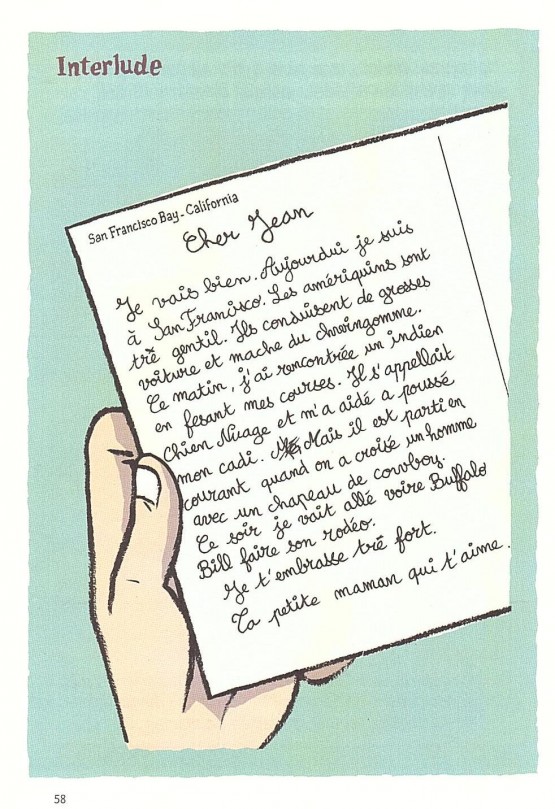 Interlude
San Francisco Bay - California
Cher Jean
Je vais bien. Aujourdui je suis
à San Francisco. Les amériquins sont
trë gentil. Ils conduisent de grosses
voiture et mache du chwingomme.
Ce matin, j'ai rencontrée un indien
en fesant mes courses. Il s'appellait
Chien Nuage et m'a aidé a poussé
mon cadi. Mais il est parti en
courant quand on a croisé un homme
avec un chapeau de cowboy.
Ce soir je vait allé voire Buffalo
Bill faire son rodéo.
Je t'embrasse tré fort.
Ta petite maman qui t'aime.
58